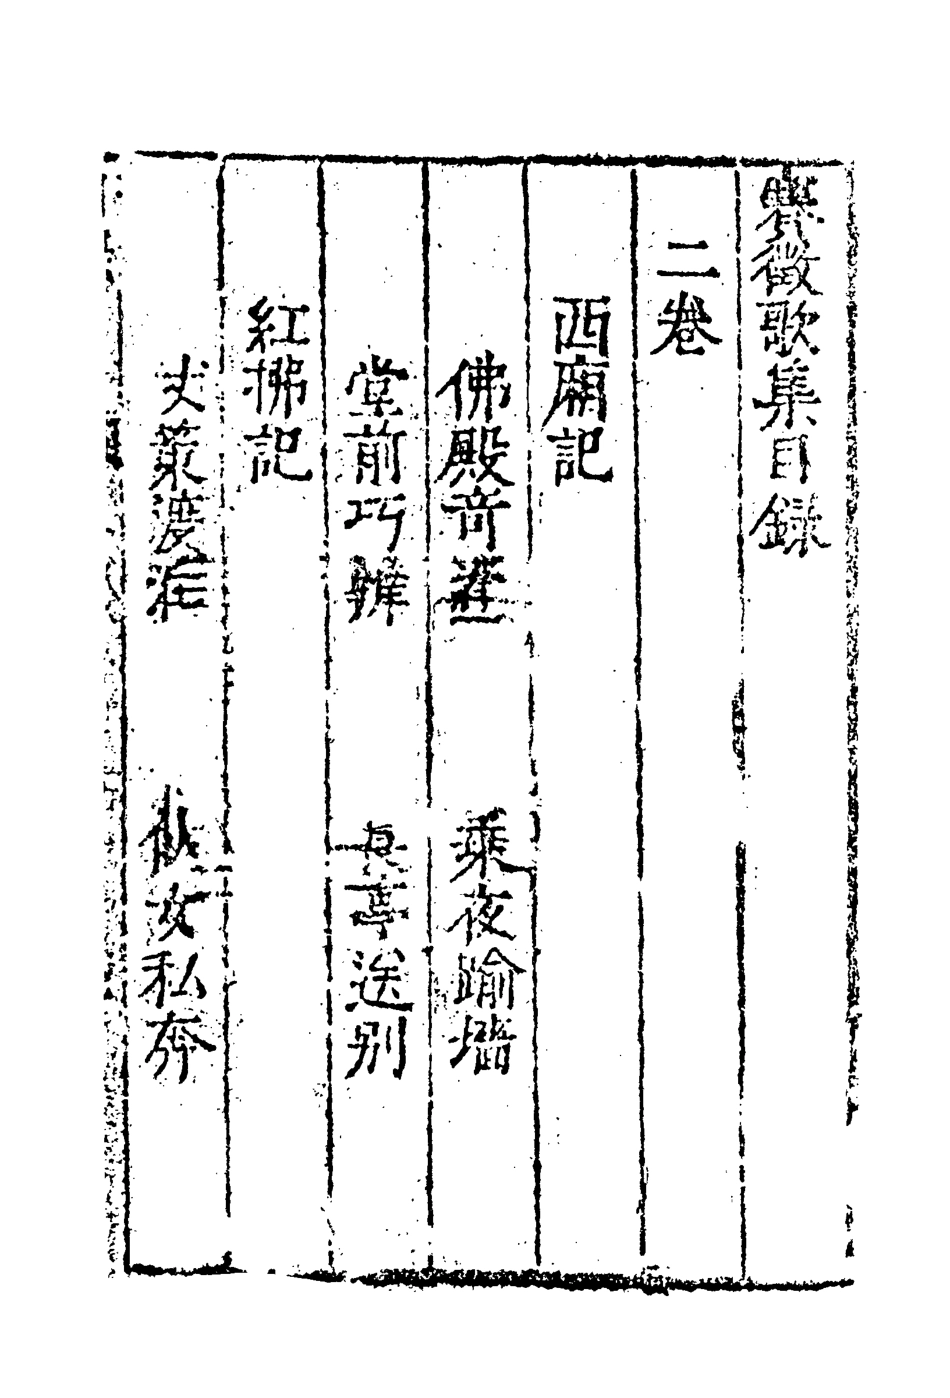 賽徵歌集目録
二卷
西廂記
佛殿奇逢　乘夜踰墻
堂前巧辯　長亭送別
紅拂記
丈策渡江　女私奔